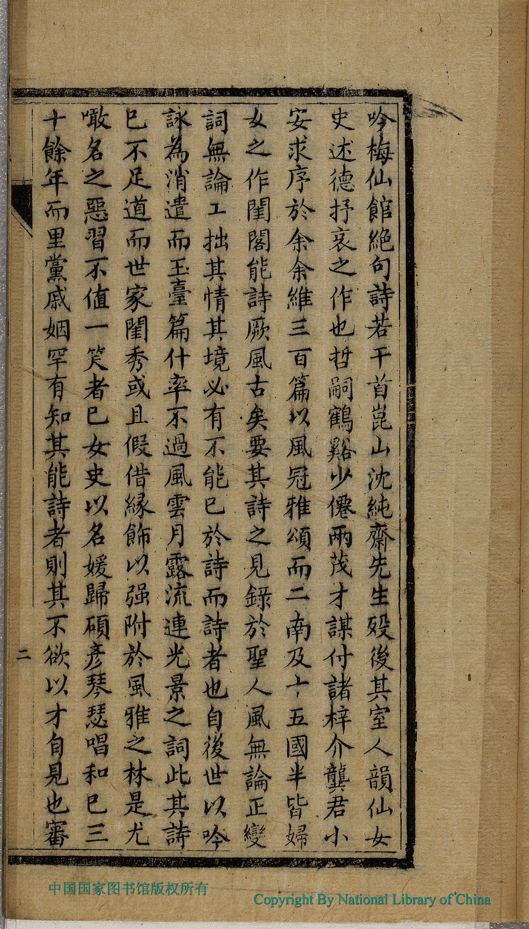 吟梅仙館絶句詩若干首崑山沈純齋先生歿後其室人韻仙女
史述德抒哀之作也哲嗣鶴谿少僊兩茂才謀付諸梓介龔君小
安求序於余余維三百篇以風冠雅頌而二南及十五國半皆婦
女之作閨閣能詩厥風古矣要其詩之見錄於聖人風無論正變
詞無論工拙其情其境必有不能已於詩而詩者也自後世以吟
詠為消遣而玉臺篇什率不過風雲月露流連光景之詞此其詩
已不足道而世家閨秀或且假借緣飾以强附於風雅之林是尤
噉名之惡習不值一笑者已女史以名媛歸碩彥琴瑟唱和已三
十餘年而里黨戚姻罕有知其能詩者則其不欲以才自見也審
二
中国国家图书馆版权所有
Copyright By National Library of China